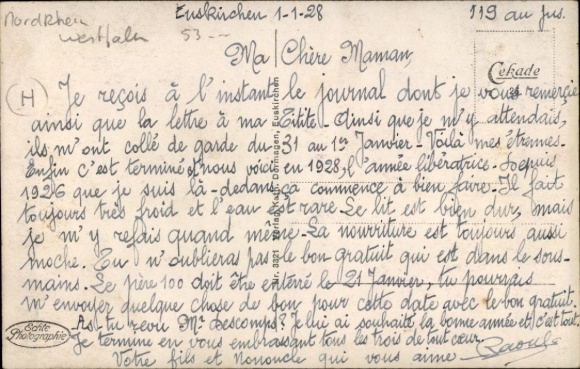 Nordrhein
Westfalen
53--
Euskirchen 1-1-28
119 au jus.
Ma Chère Maman,
Cekade
H
Je reçois à l'instant le journal dont je vous remercie
ainsi que la lettre à ma Titite - Ainsi que je m'y attendais,
ils m'ont collé de garde du 31 au 1er Janvier - Voilà mes étrennes -
Enfin c'est terminé et nous voici en 1928, l'année libératrice - Depuis
1926 que je suis là-dedans, ça commence à bien faire - Il fait
toujours très froid et l'eau est rare - Le lit est bien dur, mais
je m'y refais quand même - La nourriture est toujours aussi
moche. Tu n'oublieras pas le bon gratuit qui est dans le sous-
mains. Le père 100 doit être enterré le 21 Janvier, tu pourrais
m'envoyer quelque chose de bon pour cette date avec le bon gratuit.
As-tu revu Mr Descomps? Je lui ai souhaité la bonne année et c'est tout.
Je termine en vous embrassant tous les trois de tout cœur.
Votre fils et Nononcle qui vous aime Raoul
Echte
Photographie
Nr. 3321 Verlag Kath. Dormagen, Euskirchen